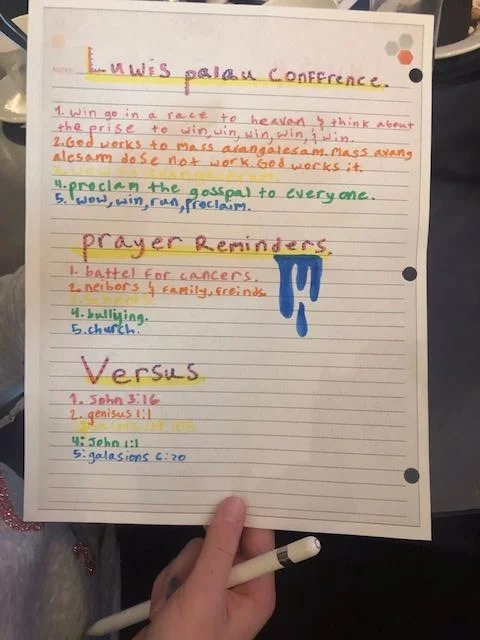 Luwis palau Conference.
1. win go in a race to heavan & think about
the prise to win, win, win, win, & win.
2. God works to mass avangalesam. Mass avang
alesann dose not work. God works it.
3.
4. proclam the gosspal to everyone.
5. wow, win, run, proclaim.
prayer Reminders.
1. battel for cancers.
2. neibors & family, freinds.
3. schools!
4. bullying.
5. church.
Versus
1. John 3:16
2. genisus 1:1
4: John 1:1
5: galasions 6:20